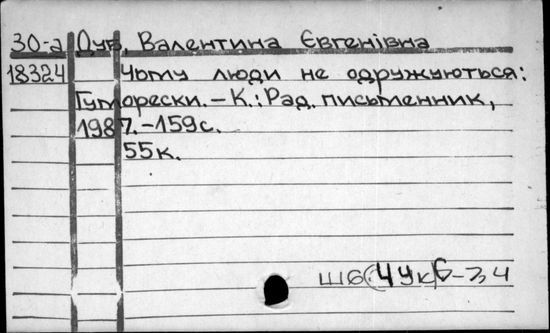 30-а Дуб, Валентина Євгенівна
18324 Чому люди не одружуються:
Гуморески. – К.: Рад. письменник,
1987. – 159 с.
55 к.